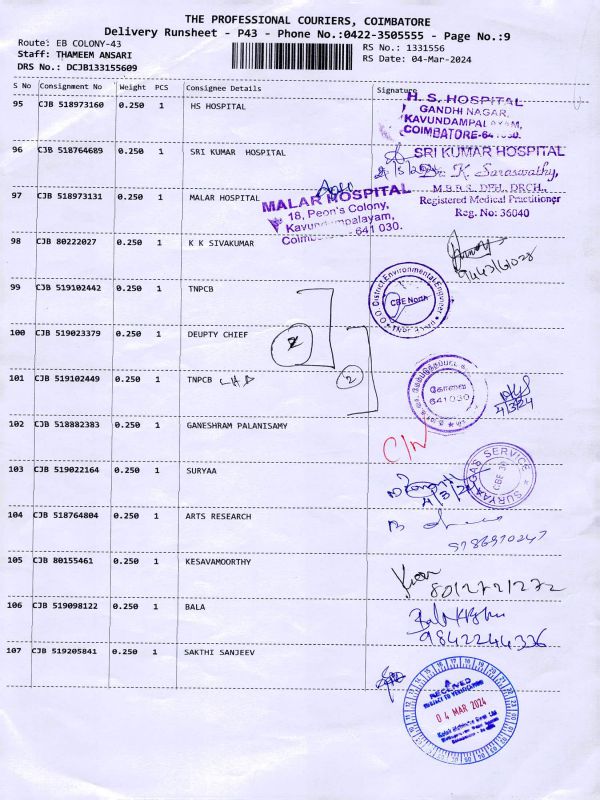 THE PROFESSIONAL COURIERS, COIMBATORE
Delivery Runsheet - P43 - Phone No.:0422-3505555 - Page No.:9
Route: EB COLONY-43 RS No.: 1331556
Staff: THAMEEM ANSARI RS Date: 04-Mar-2024
DRS No.: DCJB133155609
S No Consignment No Weight PCS Consignee Details Signature
95 CJB 518973160 0.250 1 HS HOSPITAL
H. S. HOSPITAL
GANDHI NAGAR,
KAVUNDAMPALAYAM,
COIMBATORE-641 030.
96 CJB 518764689 0.250 1 SRI KUMAR HOSPITAL
SRI KUMAR HOSPITAL
Dr. K. Saraswathy,
M.B.B.S., DPH., DRCH.,
Registered Medical Practitioner
Reg. No: 36040
97 CJB 518973131 0.250 1 MALAR HOSPITAL
MALAR HOSPITAL
18, Peon's Colony,
Kavundampalayam,
641 030.
98 CJB 80222027 0.250 1 K K SIVAKUMAR
99 CJB 519102442 0.250 1 TNPCB
District Environmental Engineer
CBE North
100 CJB 519023379 0.250 1 DEUPTY CHIEF
2
101 CJB 519102449 0.250 1 TNPCB
கோவை
641 030
4/3/24
102 CJB 518882383 0.250 1 GANESHRAM PALANISAMY
C/N
103 CJB 519022164 0.250 1 SURYAA
4/3/24
SURYAA GAS SERVICE
104 CJB 518764804 0.250 1 ARTS RESEARCH
105 CJB 80155461 0.250 1 KESAVAMOORTHY
106 CJB 519098122 0.250 1 BALA
9842244336
107 CJB 519205841 0.250 1 SAKTHI SANJEEV
RECEIVED
SUBJECT TO VERIFICATION
04 MAR 2024